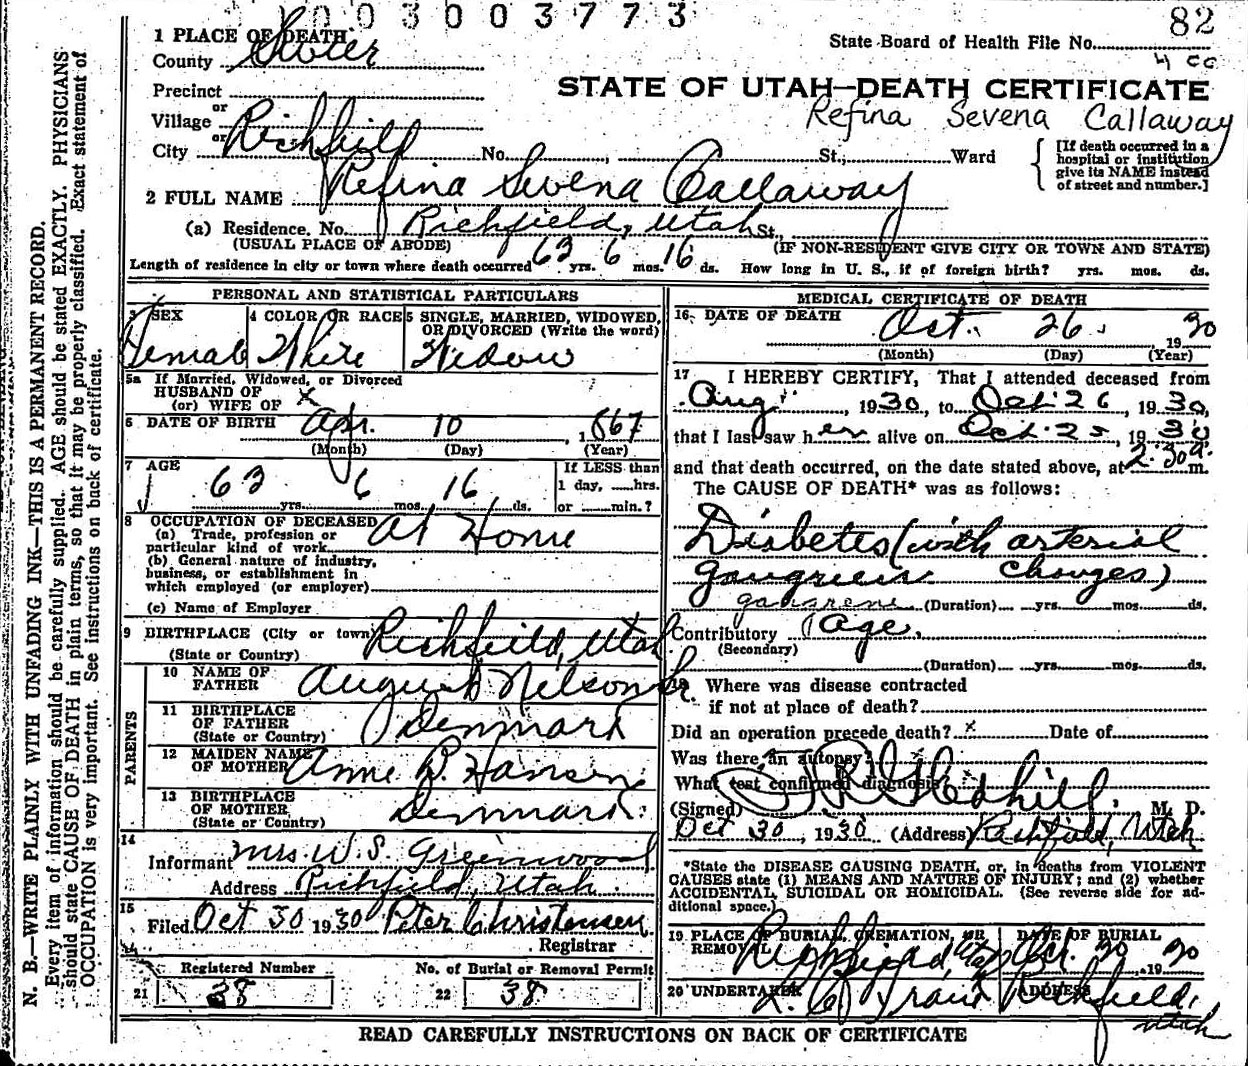 003003773
82
State Board of Health File No.
4 cc
STATE OF UTAH—DEATH CERTIFICATE
Refina Sevena Callaway
1 PLACE OF DEATH
County Sevier
Precinct
or
Village
or
City Richfield No. , St., Ward
[If death occurred in a hospital or institution give its NAME instead of street and number.]
2 FULL NAME Refina Sevena Callaway
(a) Residence. No. Richfield, Utah St.
(USUAL PLACE OF ABODE) (IF NON-RESIDENT GIVE CITY OR TOWN AND STATE)
Length of residence in city or town where death occurred 63 yrs. 6 mos. 16 ds. How long in U. S., if of foreign birth? yrs. mos. ds.
PERSONAL AND STATISTICAL PARTICULARS
3 SEX 4 COLOR OR RACE 5 SINGLE, MARRIED, WIDOWED, OR DIVORCED (Write the word)
Female White Widow
5a If Married, Widowed, or Divorced
HUSBAND OF
(or) WIFE OF X
6 DATE OF BIRTH Apr. 10, 1867
(Month) (Day) (Year)
7 AGE 63 yrs. 6 mos. 16 ds.
If LESS than 1 day, hrs. or min.?
8 OCCUPATION OF DECEASED At Home
(a) Trade, profession or particular kind of work
(b) General nature of industry, business, or establishment in which employed (or employer)
(c) Name of Employer
9 BIRTHPLACE (City or town) Richfield, Utah
(State or Country)
PARENTS
10 NAME OF FATHER August Nelson
11 BIRTHPLACE OF FATHER Denmark
(State or Country)
12 MAIDEN NAME OF MOTHER Anne B. Hansen
13 BIRTHPLACE OF MOTHER Denmark
(State or Country)
14 Informant Mrs W. S. Greenwood
Address Richfield, Utah
15 Filed Oct 30 1930 Peter Christensen
Registrar
Registered Number
21 38
No. of Burial or Removal Permit
22 38
MEDICAL CERTIFICATE OF DEATH
16 DATE OF DEATH Oct. 26, 1930
(Month) (Day) (Year)
17 I HEREBY CERTIFY, That I attended deceased from
Aug , 1930, to Oct 26, 1930,
that I last saw her alive on Oct. 25, 1930
and that death occurred, on the date stated above, at 2:30 a. m.
The CAUSE OF DEATH* was as follows:
Diabetes (with arterial
gangrene changes)
gangrene (Duration) yrs. mos. ds.
Contributory Age.
(Secondary)
(Duration) yrs. mos. ds.
18 Where was disease contracted
if not at place of death?
Did an operation precede death? x Date of
Was there an autopsy? x
What test confirmed diagnosis
(Signed) Gledhill. M. D.
Oct 30, 1930 (Address) Richfield, Utah
*State the DISEASE CAUSING DEATH, or, in deaths from VIOLENT
CAUSES state (1) MEANS AND NATURE OF INJURY; and (2) whether
ACCIDENTAL, SUICIDAL OR HOMICIDAL. (See reverse side for additional space.)
19 PLACE OF BURIAL, CREMATION, OR REMOVAL DATE OF BURIAL
Richfield, Utah Oct. 30 1930
20 UNDERTAKER ADDRESS
Richfield, Utah
READ CAREFULLY INSTRUCTIONS ON BACK OF CERTIFICATE
N. B.—WRITE PLAINLY WITH UNFADING INK—THIS IS A PERMANENT RECORD.
Every item of information should be carefully supplied. AGE should be stated EXACTLY. PHYSICIANS
should state CAUSE OF DEATH in plain terms, so that it may be properly classified. Exact statement of
OCCUPATION is very important. See instructions on back of certificate.